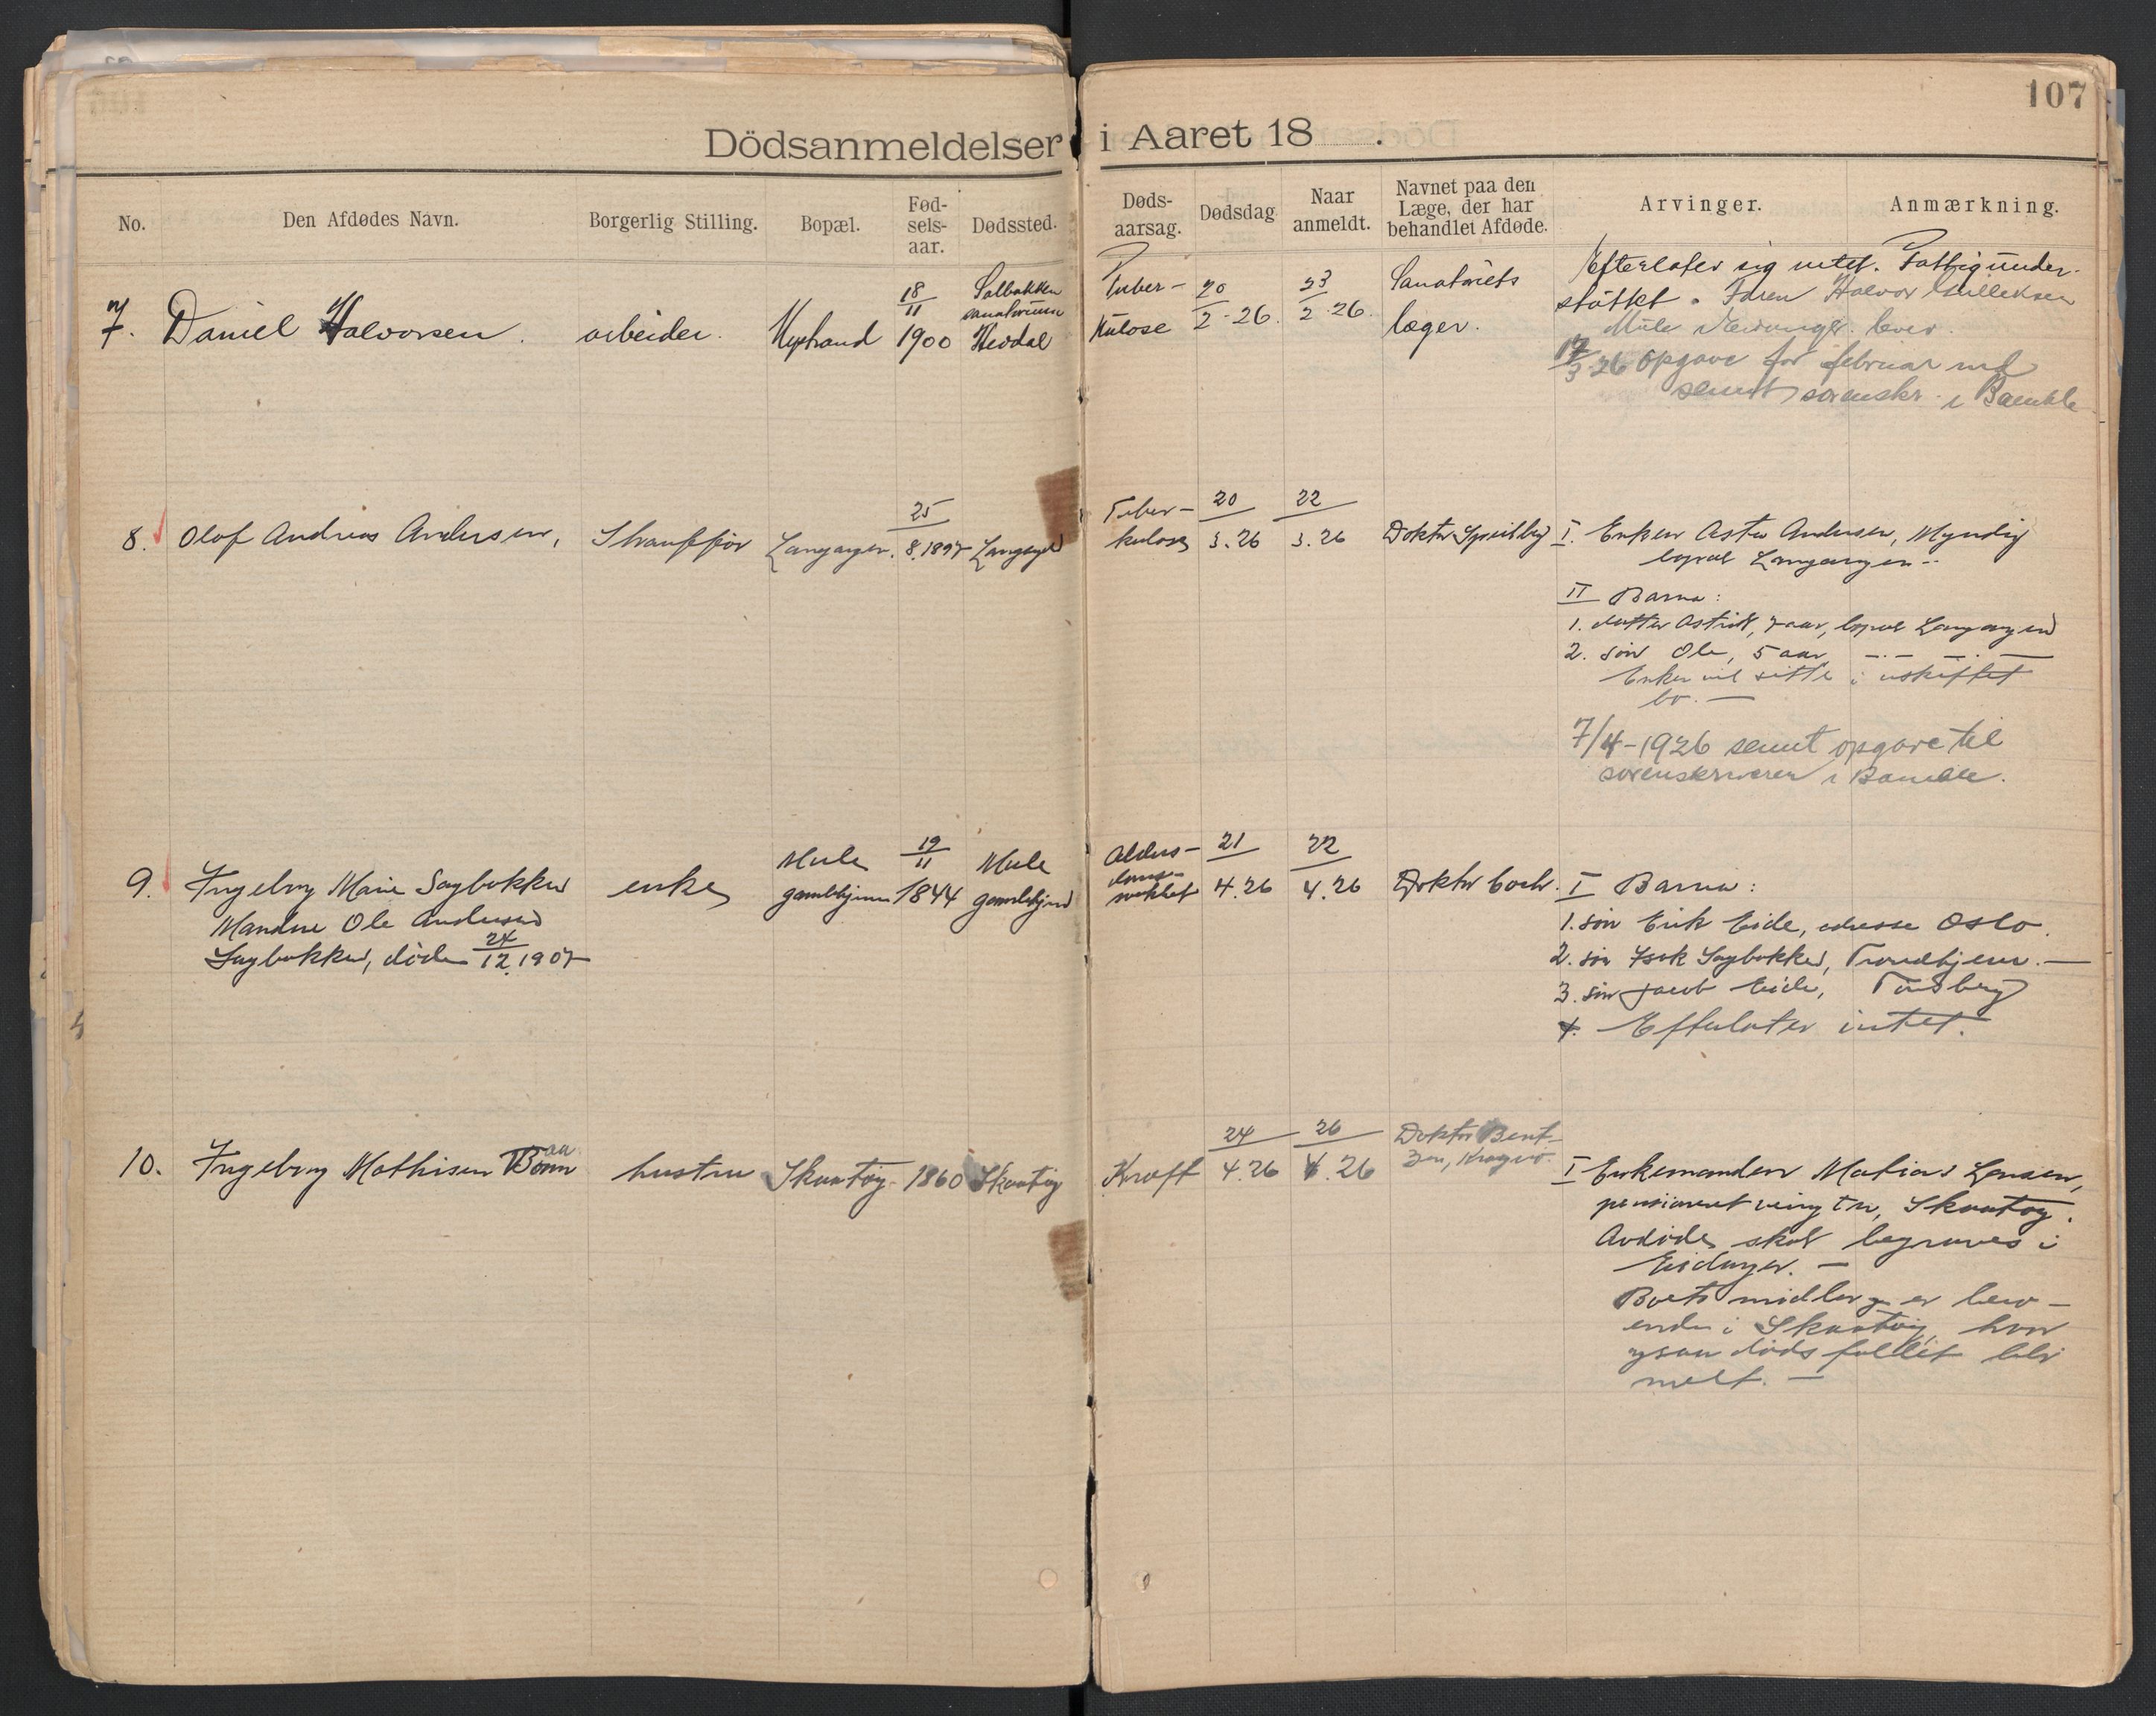 107
Dödsanmeldelser i Aaret 18 .
No. Den Afdødes Navn. Borgerlig Stilling. Bopæl. Fød-sels-aar. Dødssted. Døds-aarsag. Dødsdag Naar anmeldt. Navnet paa den Læge, der har behandlet Afdøde. Arvinger. Anmærkning.
7. Daniel Halvorsen. arbeider. 18/11 1900
Solbakken
sanatorium
Tuber-
kulose
20/2-26. 23/2-26.
Sanatoriets
læger.
Efterlater sig intet. Fattigunder-
støttet. Faren Halvor
Mule Eidanger. lever.
17/3 26 opgave for februar md
sendt sorenskr. i Bamble
8. Olaf Andreas Andersen, Langangen. 25/8.1897 Langangen
Tuber-
kulose
20/3.26 22/3.26 Doktor
I. Enken Andersen, Myndig
bopæl Langangen.
II Barna:
1. datter Astrid, 7 aar, bopæl Langangen
2. søn Ole, 5 aar —.— —.—
Enken vil sitte i uskiftet
bo. —
7/4-1926 sendt opgave til
sorenskriveren i Bamble.
9. Ingeborg Marie Sagbakken enke
Manden Ole Andersen
Sagbakken, døde 24/12 1907
Mule
gamlehjem
19/11 1844
Mule
gamlehjem
Alders-
doms-
svakhet
21/4.26 22/4.26 Doktor
I Barna:
1. søn Erik Eide, adresse Oslo.
2. søn Isak Sagbakken, Trondhjem. —
3. søn Jacob Eide, Tønsberg
4. Efterlater intet.
10. Ingeborg Mathisen hustru Skaatøy 1860 Skaatøy
Kræft 24/4.26 26/4.26
Doktor Bent-
zen, Kragerø.
I Enkemanden Matias
pensionert Skaatøy.
Avdøde skal begraves i
Eidanger. —
Boets midler er bero-
ende i Skaatøy, hvor
ogsaa dødsfallet blir
melt. —